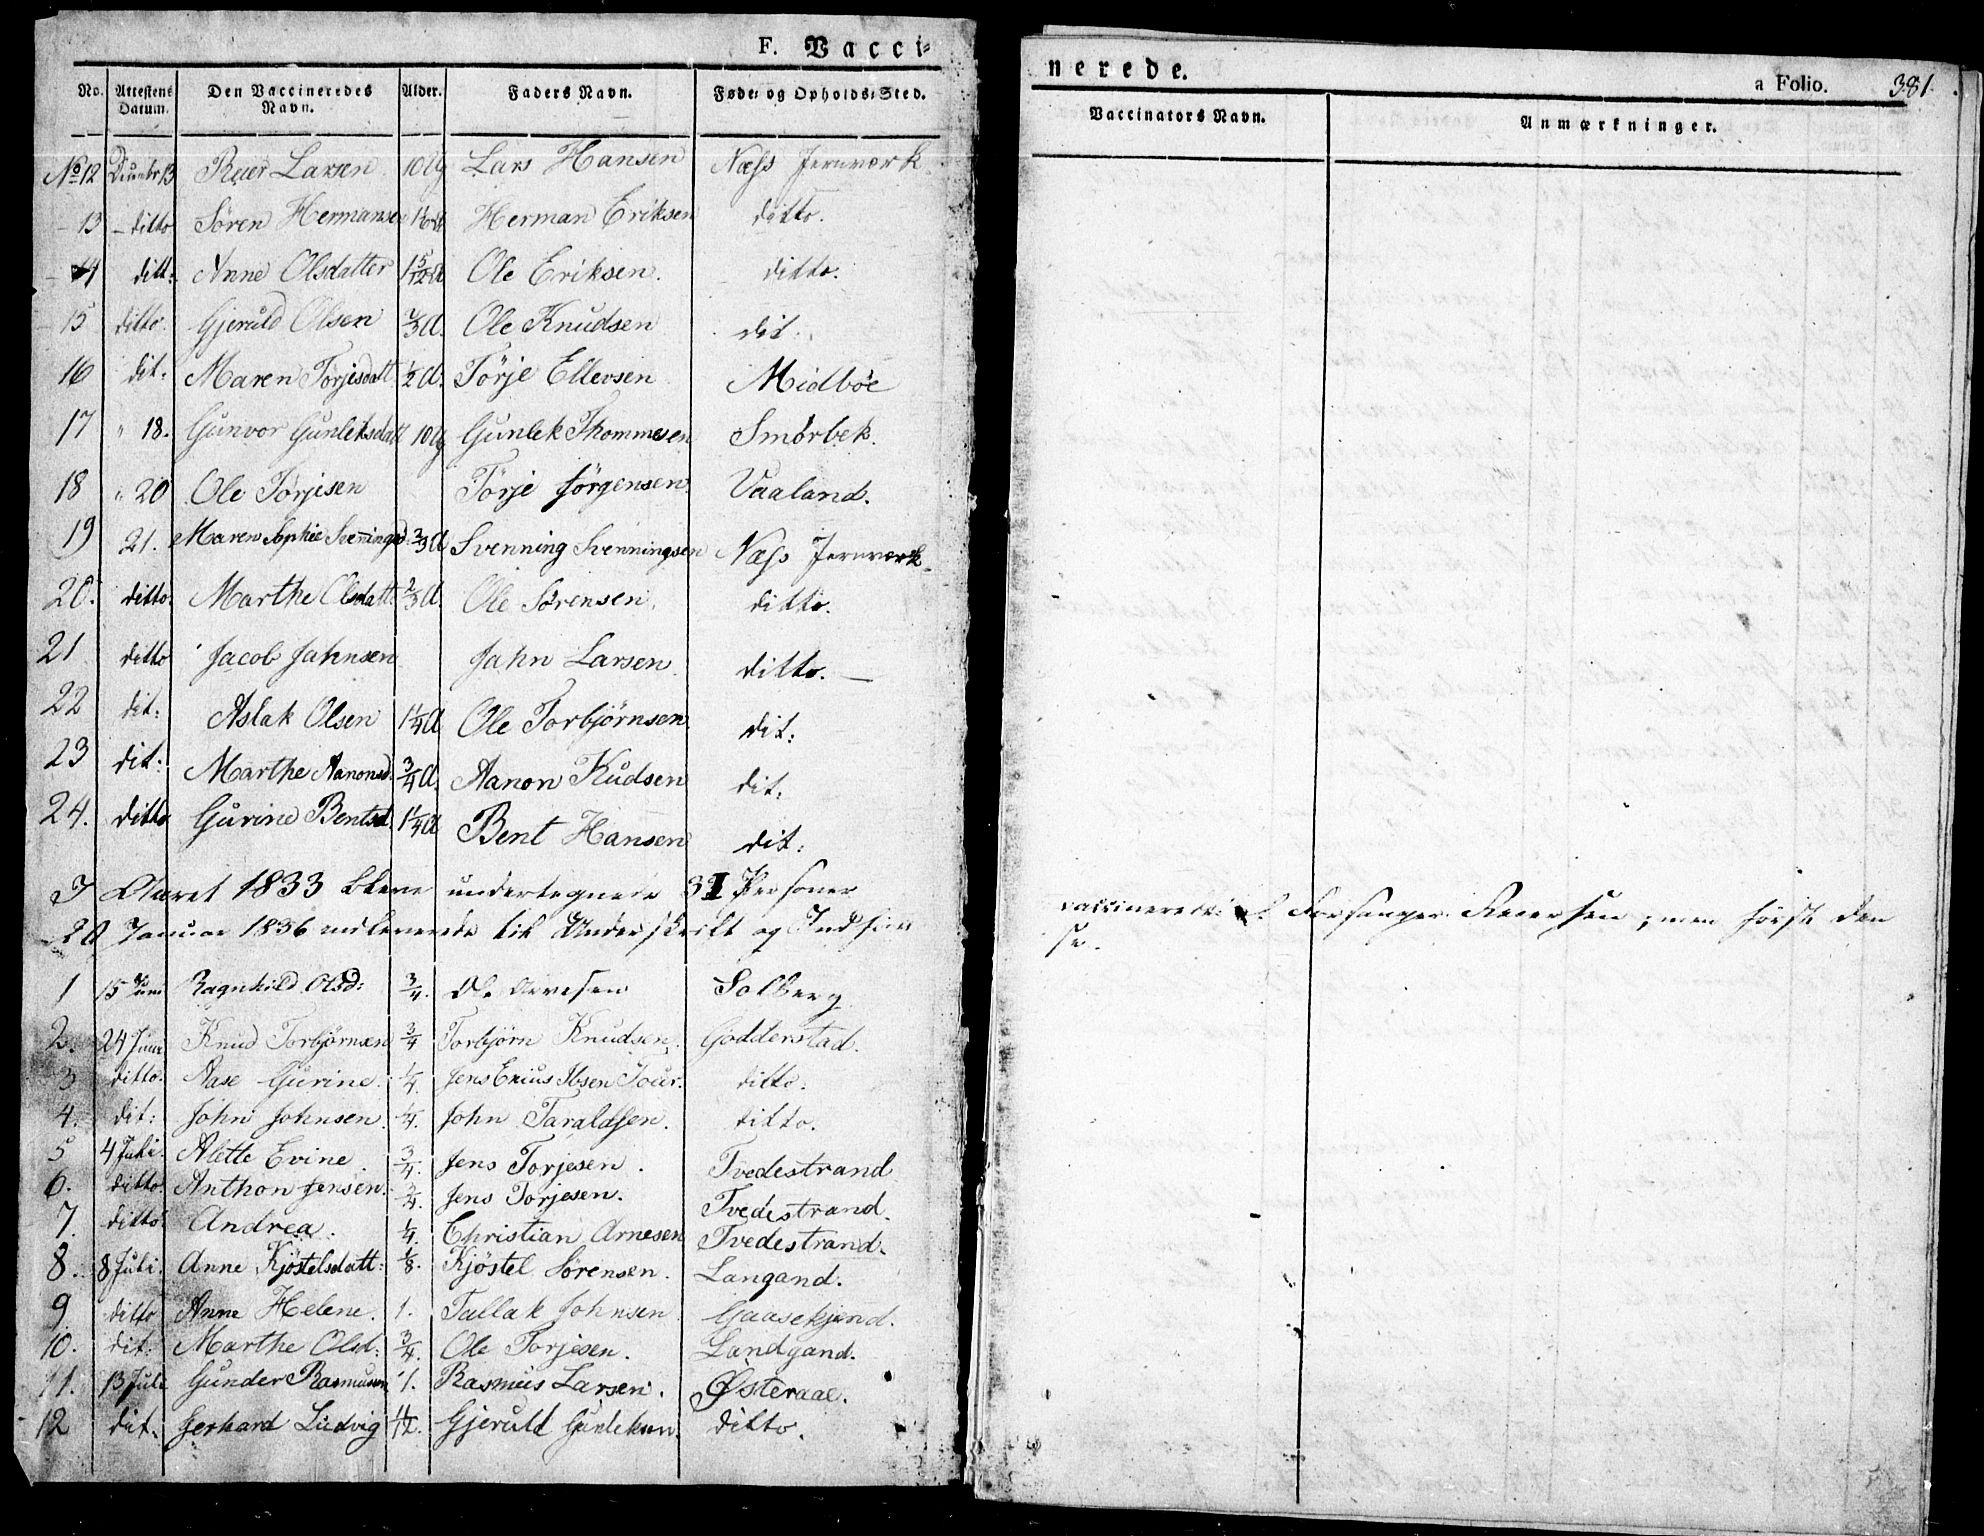 F. Vacci-
nerede.
a Folio. 381.
No. Attestens Datum. Den Vaccineredes Navn. Alder. Faders Navn. Føde- og Opholds-Sted. Vaccinators Navn. Anmærkninger.
No 12 13 Reier Larsen 10 Lars Hansen Næss Jernværk
13 ditto Sören Hermansen Herman Eriksen ditto.
14 ditt: Anne Olsdatter 1 5/12 A Ole Eriksen. ditto.
15 ditto. Gjeruld Olsen Ole Knudsen dit.
16 dit. Maren Torjisdatt 1/2 A. Törje Ellevsen Midböe
17 " 18. Gunvor Gunleksdatt 10 Gunlek Thommesen Smörbek.
18 " 20 Ole Törjesen Törje Jörgensen Vaaland.
19 21. Maren Sophie Svenningsd: 2/3 A Svenning Svenningsen Næss Jernværk.
20. ditto. Marthe Olsdatt. 2/3 A. Ole Sörensen. ditto.
21 ditto Jacob Jahnsen Jahn Larsen ditto.
22 dit: Aslak Olsen 1 1/4 A Ole Torbjörnsen. dit:
23 dit: Marthe Aanonsd. 3/4 A. Aanon Kudsen dit:
24. ditto Gurine Bentsd. 1 1/4 A Bent Hansen dit:
I Aaret 1833 bleve undertegnede Personer vaccinerede af Forsanger Reiersen, men först den
20 Januar 1836 til Underskrift og
1 15 Juni Ragnhild Olsd: 3/4. Ole Solberg
2. 24 Juni Knud Torbjörnsen 3/4 Torbjörn Knudsen. Godderstad.
3 ditto. Aase Gurine. 1/4. Jens Ibsen ditto.
4. dit: John Johnsen. 1/4. John Taraldsen. ditto.
5 4 Juli. Alette Evine 3/4. Jens Torjesen. Tvedestrand
6. ditto. Anthon Jensen. 3/4 Jens Torjesen. Tvedestrand.
7. ditto. Andrea. 1/4. Christian Arnesen Tvedestrand.
8. 8 Juli. Anne Kjöstelsdatt: 1/8. Kjöstel Sörensen. Langand.
9 ditto Anne Helene. 1. Tallak Johnsen Gaasekjend.
10. dit: Marthe Olsd: 3/4. Ole Torjesen. Landgand.
11. 13 Juli Gunder Rasmusen 1. Rasmus Larsen. Østeraae.
12 dit. Gerhard Ludvig Gjeruld Gunleksen. ditto.